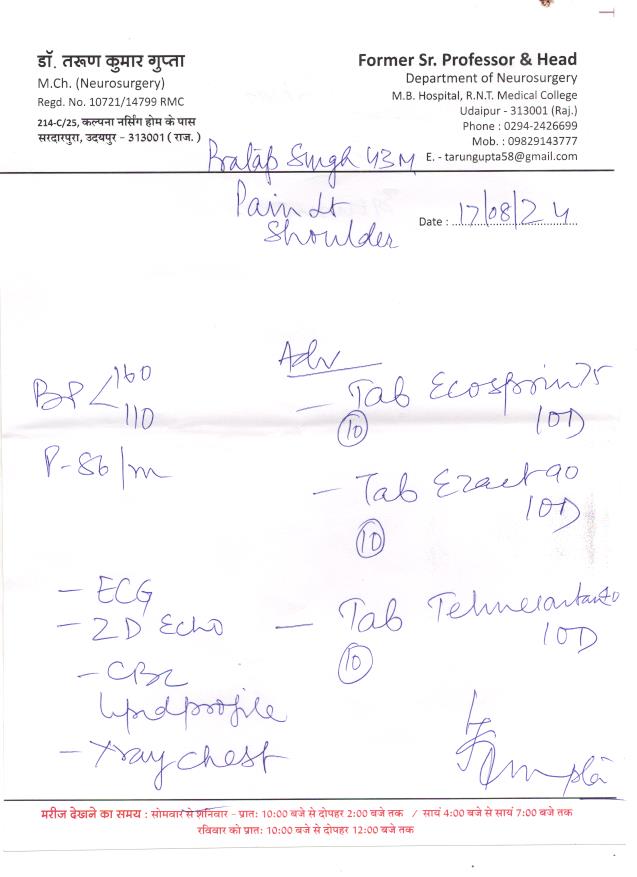 डॉ. तरूण कुमार गुप्ता
M.Ch. (Neurosurgery)
Regd. No. 10721/14799 RMC
214-C/25, कल्पना नर्सिंग होम के पास
सरदारपुरा, उदयपुर - 313001 ( राज. )
Former Sr. Professor & Head
Department of Neurosurgery
M.B. Hospital, R.N.T. Medical College
Udaipur - 313001 (Raj.)
Phone : 0294-2426699
Mob. : 09829143777
E. - tarungupta58@gmail.com
Pratap Singh 43M
Pain Lt
Shoulder
Date : 17/08/24
BP < 160
110
P-86/m
- ECG
- 2D Echo
- CBC
lipid profile
- Xray chest
Adv
- Tab Ecosprin 75
10 1OD
- Tab Ezact 90
1OD
10
- Tab
1OD
10
मरीज देखने का समय : सोमवार से शनिवार - प्रातः 10:00 बजे से दोपहर 2:00 बजे तक / सायं 4:00 बजे से सायं 7:00 बजे तक
रविवार को प्रातः 10:00 बजे से दोपहर 12:00 बजे तक